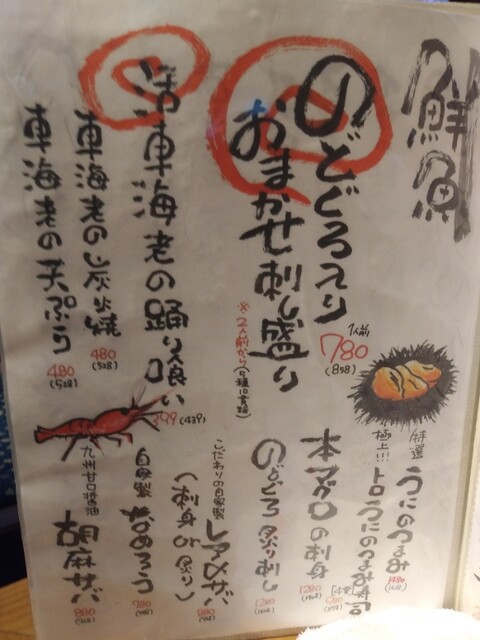 鮮魚
のどぐろ入り
おまかせ刺し盛り
1人前
780
(858)
※2人前から(5種10貫)
活車海老の踊り喰い
399 (439)
車海老の炭火焼
480
(528)
車海老の天ぷら
480
(528)
特選
うにのつまみ
1480
極上!!!
トロうにのつまみ寿司
本マグロの刺身
1280
のどぐろ炙り刺し
1280
こだわりの自家製
レア〆サバ
(刺身 or 炙り)
980
自家製
なめろう
780
九州甘口醤油
胡麻サバ
980